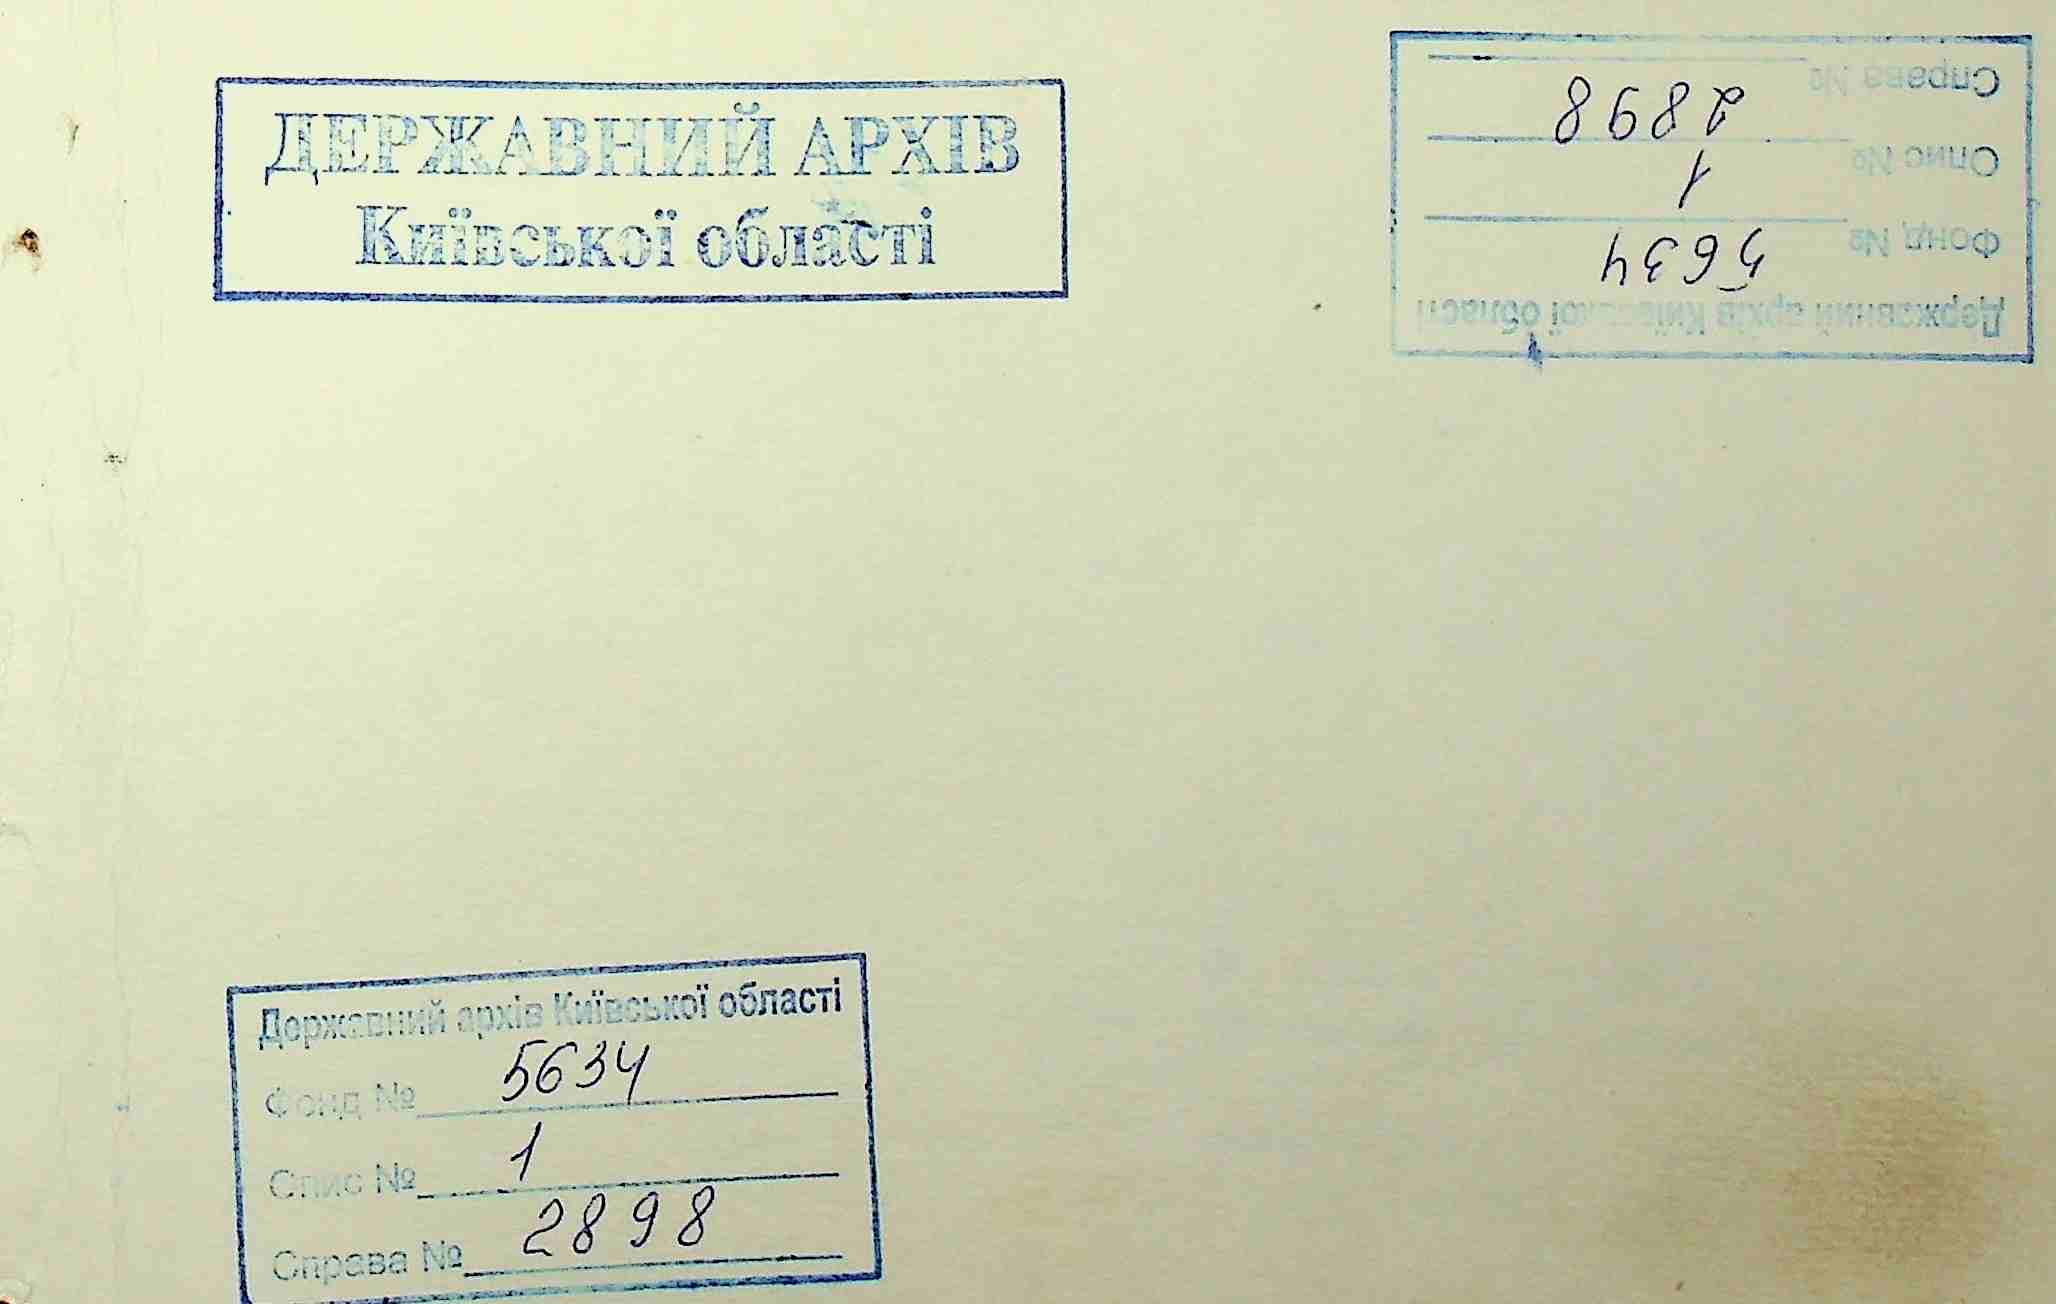 ДЕРЖАВНИЙ АРХІВ
Київської області
Державний архів Київської області
Фонд № 5634
Опис № 1
Справа № 2898
Державний архів Київської області
Фонд № 5634
Опис № 1
Справа № 2898